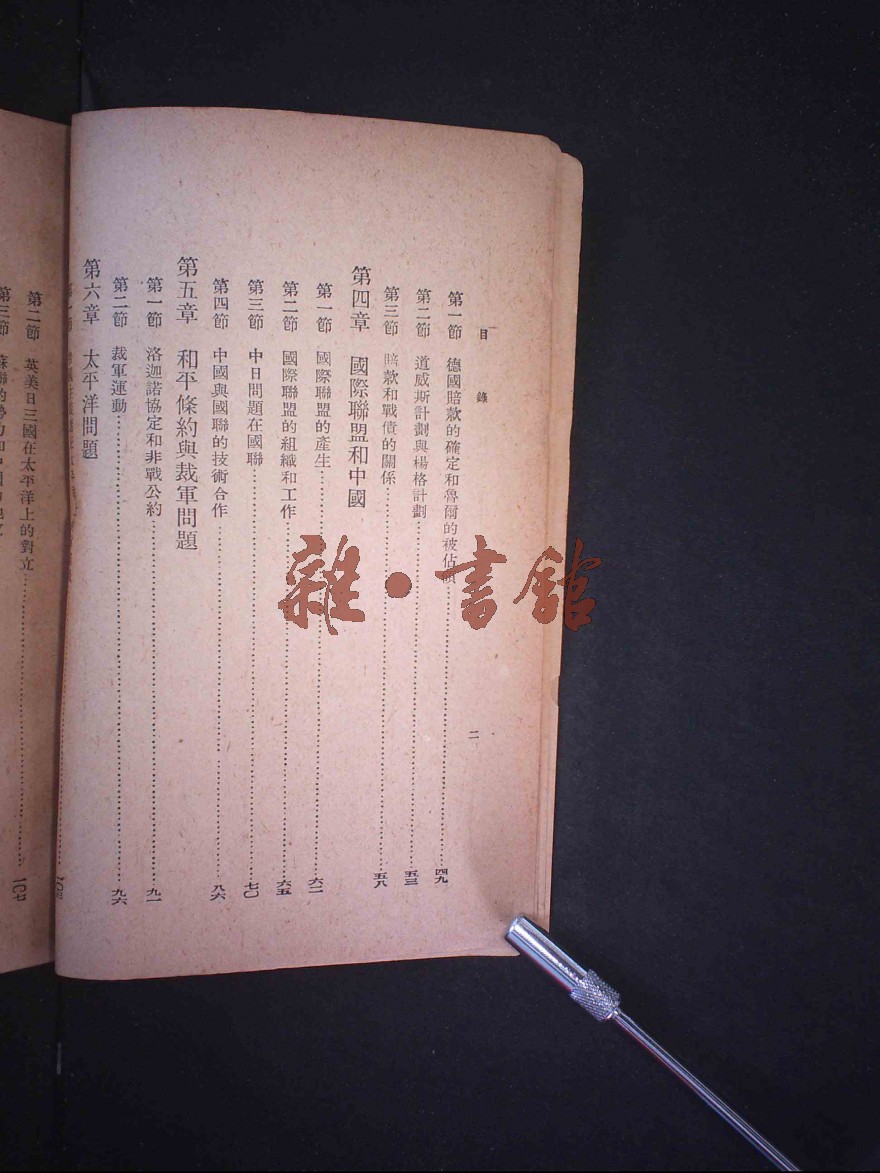 目錄
二
第一節 德國賠款的確定和魯爾的被佔領………四九
第二節 道威斯計劃與楊格計劃………五三
第三節 賠款和戰債的關係………五八
第四章 國際聯盟和中國
第一節 國際聯盟的產生………六二
第二節 國際聯盟的組織和工作………六五
第三節 中日問題在國聯………七〇
第四節 中國與國聯的技術合作………八六
第五章 和平條約與裁軍問題
第一節 洛迦諾協定和非戰公約………九一
第二節 裁軍運動………九六
第六章 太平洋問題
第二節 英美日三國在太平洋上的對立………一〇七
第三節 蘇聯的
雜·書館